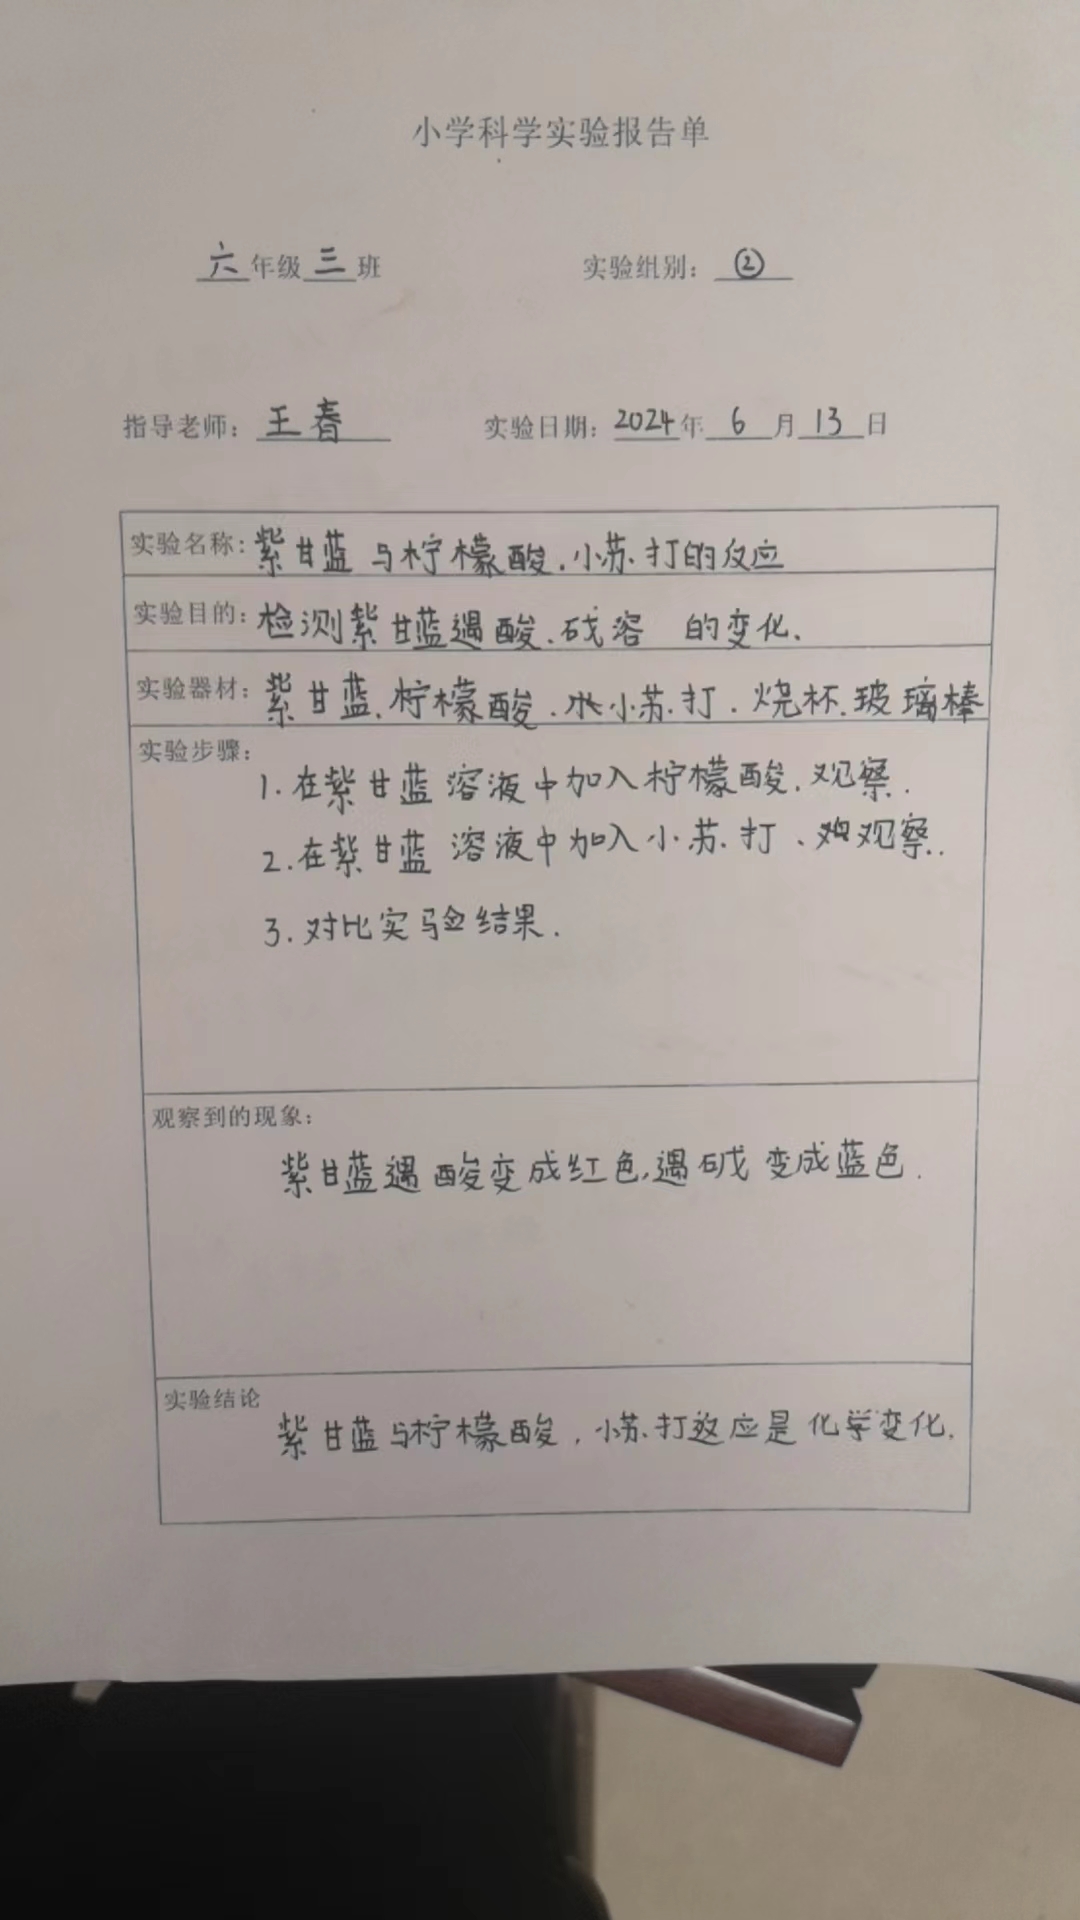 小学科学实验报告单
六年级三班 实验组别：②
指导老师：王春 实验日期：2024年6月13日
实验名称：紫甘蓝与柠檬酸.小苏打的反应
实验目的：检测紫甘蓝遇酸.碱溶 的变化.
实验器材：紫甘蓝.柠檬酸.水小苏打.烧杯.玻璃棒
实验步骤：
1.在紫甘蓝溶液中加入柠檬酸.观察.
2.在紫甘蓝溶液中加入小苏打、观察.
3.对比实验结果.
观察到的现象：
紫甘蓝遇酸变成红色,遇碱变成蓝色.
实验结论
紫甘蓝与柠檬酸,小苏打这应是化学变化.